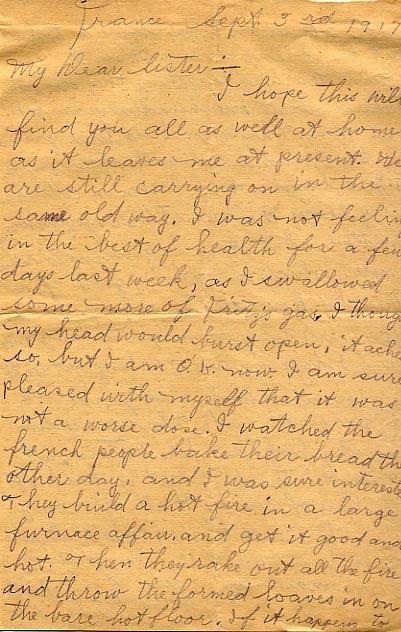 France Sept. 3rd 1917
My Dear Sister:-
I hope this will
find you all as well at home
as it leaves me at present. We
are still carrying on in the
same old way. I was not feelin
in the best of health for a few
days last week, as I swallowed
some more of Fritz's gas, I thoug
my head would burst open, it ache
so, but I am O.K. now. I am sure
pleased with myself that it was
not a worse dose. I watched the
french people bake their bread th
other day, and I was sure intereste
They build a hot fire in a large
furnace affair. and get it good and
hot. Then they rake out all the fire
and throw the formed loaves in on
the bare hot floor. If it happens to